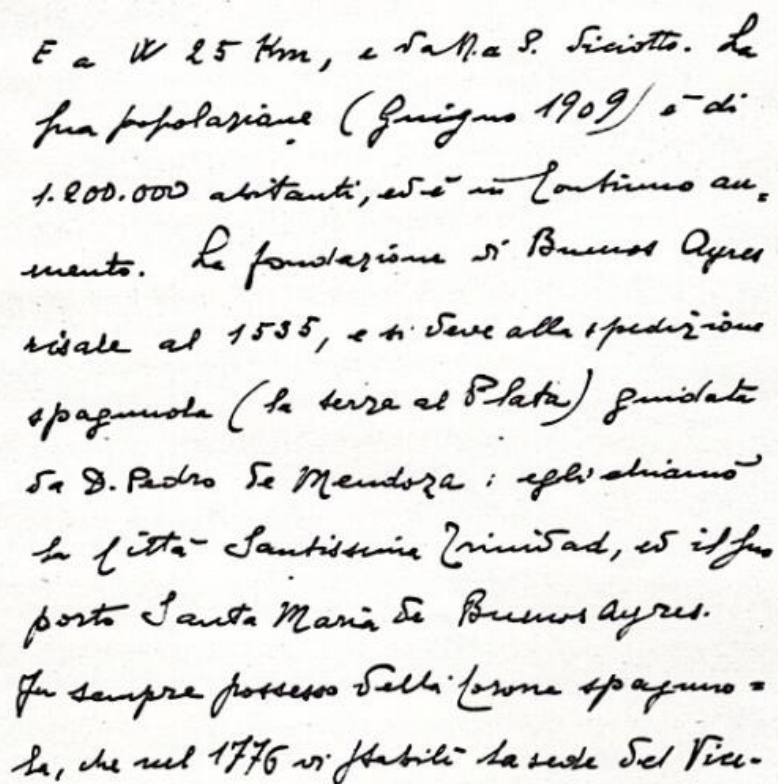 E a W 25 Km, e da N. a S. diciotto. La
sua popolazione (Giugno 1909) è di
1.200.000 abitanti, ed è in continuo au=
mento. La fondazione di Buenos Ayres
risale al 1535, e si deve alla spedizione
spagnuola (la terza al Plata) guidata
da D. Pedro de Mendoza: egli chiamò
la città Santissima Trinidad, ed il suo
porto Santa Maria de Buenos Ayres.
Fu sempre possesso della corona spagnuo=
la, che nel 1776 vi stabilì la sede del Vice-